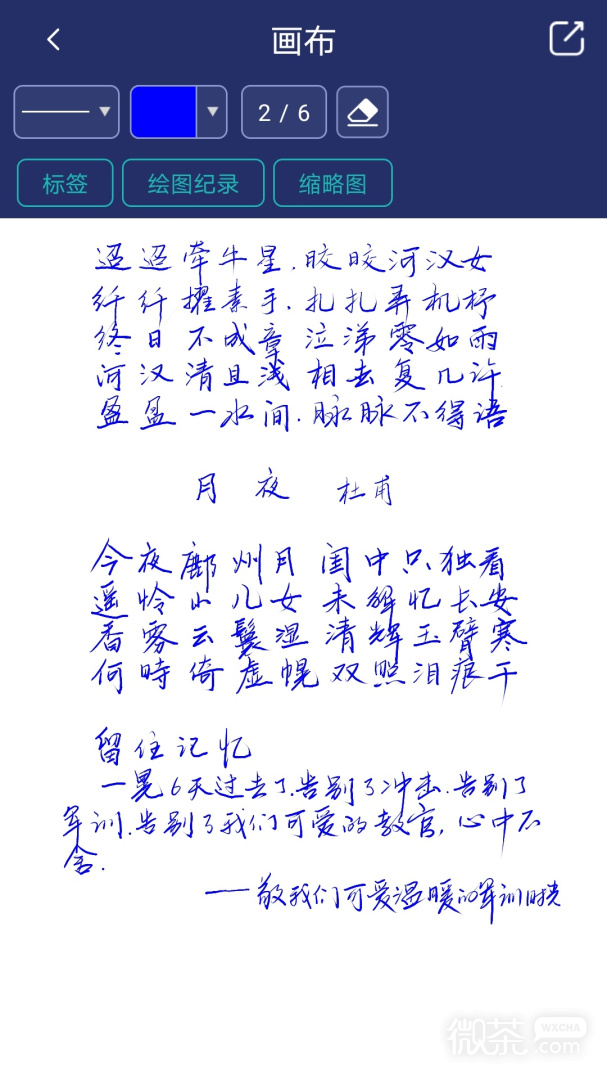 画布
2 / 6
标签 绘图纪录 缩略图
迢迢牵牛星.皎皎河汉女
纤纤擢素手.扎扎弄机杼
终日不成章 泣涕零如雨
河汉清且浅 相去复几许
盈盈一水间.脉脉不得语
月夜 杜甫
今夜鄜州月 闺中只独看
遥怜小儿女 未解忆长安
香雾云鬟湿 清辉玉臂寒
何時倚虚幌 双照泪痕干
留住记忆
一晃6天过去了.告别了冲击.告别了
军训.告别了我们可爱的教官,心中不
舍.
——敬我们可爱温暖的军训时光
微茶 WXCHA .com